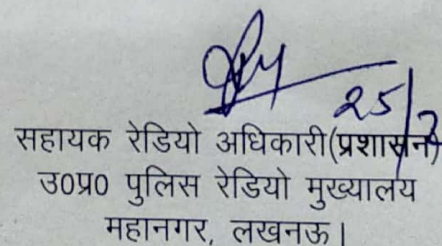 25/2
सहायक रेडियो अधिकारी(प्रशासन)
उ0प्र0 पुलिस रेडियो मुख्यालय
महानगर, लखनऊ।